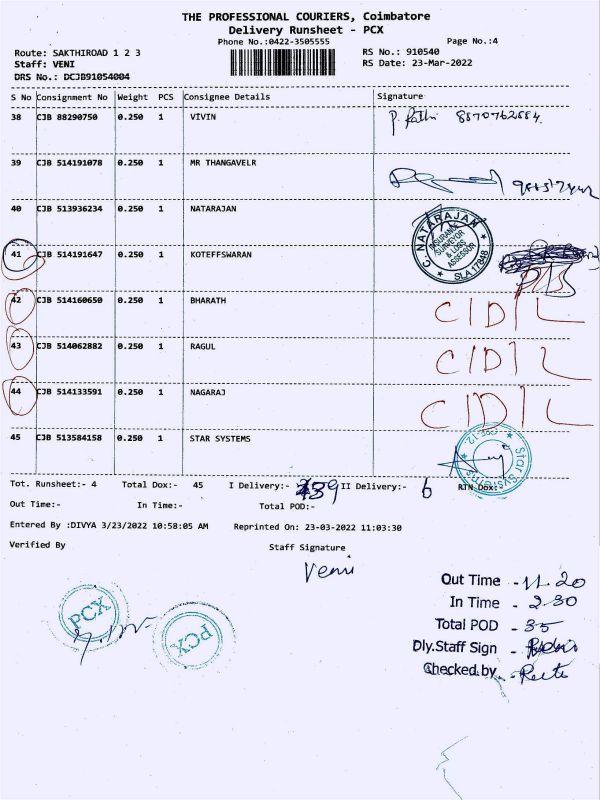 THE PROFESSIONAL COURIERS, Coimbatore
Delivery Runsheet - PCX
Phone No.:0422-3505555
Page No.:4
Route: SAKTHIROAD 1 2 3
RS No.: 910540
Staff: VENI
RS Date: 23-Mar-2022
DRS No.: DCJB91054004
S No Consignment No Weight PCS Consignee Details Signature
38 CJB 88290750 0.250 1 VIVIN 8870762884
39 CJB 514191078 0.250 1 MR THANGAVELR
40 CJB 513936234 0.250 1 NATARAJAN
C. NATARAJAN
INSURANCE
SURVEYOR
& LOSS
ASSESSOR
SLA 17848
41 CJB 514191647 0.250 1 KOTEFFSWARAN
42 CJB 514160650 0.250 1 BHARATH C/D/L
43 CJB 514062882 0.250 1 RAGUL C/D/L
44 CJB 514133591 0.250 1 NAGARAJ C/D/L
45 CJB 513584158 0.250 1 STAR SYSTEMS
Star Systems
Tot. Runsheet:- 4 Total Dox:- 45 I Delivery:- 39 II Delivery:- 6 RTN Dox:-
Out Time:- In Time:- Total POD:-
Entered By :DIVYA 3/23/2022 10:58:05 AM Reprinted On: 23-03-2022 11:03:30
Verified By Staff Signature
Veni
PCX
PCX
Out Time - 11.20
In Time - 2.30
Total POD - 35
Dly.Staff Sign -
Checked.by -